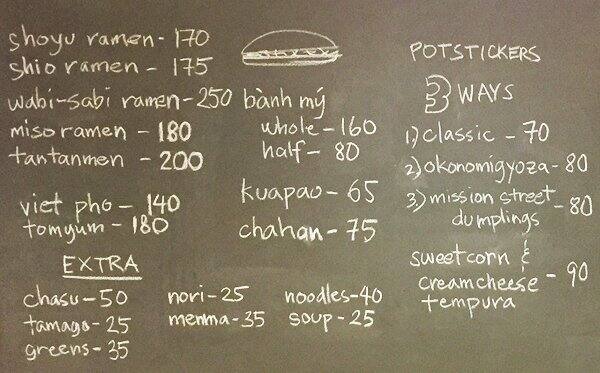 shoyu ramen - 170
shio ramen - 175
wabi-sabi ramen - 250
miso ramen - 180
tantanmen - 200
viet pho - 140
tomyum - 180
EXTRA
chasu - 50
tamago - 25
greens - 35
nori - 25
menma - 35
noodles - 40
soup - 25
bành mý
whole - 160
half - 80
kuapao - 65
chahan - 75
POTSTICKERS
3 WAYS
1) classic - 70
2) okonomigyoza - 80
3) mission street
dumplings - 80
sweetcorn &
creamcheese - 90
tempura